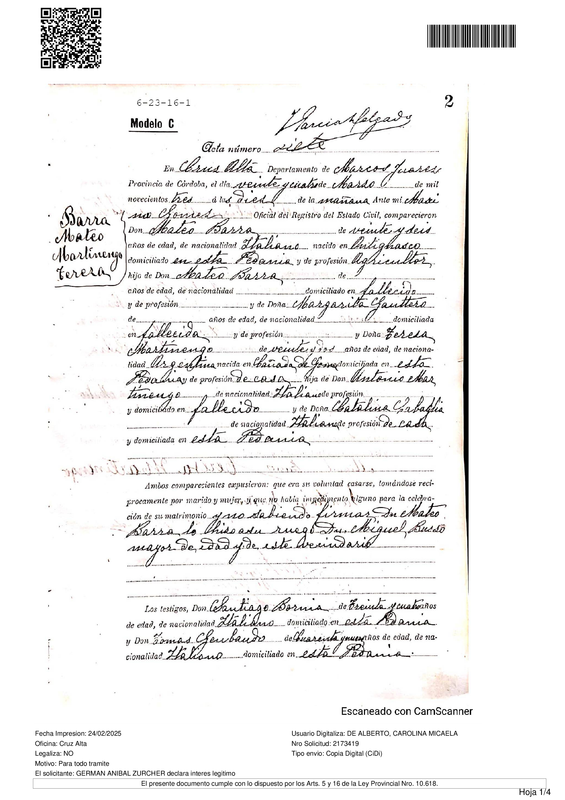 6-23-16-1
2
Modelo C
Acta número siete
En Cruz Alta, Departamento de Marcos Juares
Provincia de Córdoba, el día veinte y cuatro de Marso de mil
novecientos tres a las dies de la mañana Ante mi, Maxi
no Gomes Oficial del Registro del Estado Civil, comparecieron
Barra
Mateo
Martinengo
Teresa
Don Mateo Barra de veinte y seis
años de edad, de nacionalidad Italiano nacido en
domiciliado en esta Pedania y de profesión Agricultor
hijo de Don Mateo Barra de
años de edad, de nacionalidad domiciliado en fallecido
y de profesión y de Doña Margarita Gauttero
de años de edad, de nacionalidad domiciliada
en fallecida y de profesión y Doña Teresa
Martinengo de veinte y dos años de edad, de naciona-
lidad Argentina nacida en Cañada de Gomes domiciliada en esta
Pedania y de profesión de casa hija de Don Antonio Mar
tinengo de nacionalidad Italiano de profesión
y domiciliado en fallecido y de Doña Catalina
de nacionalidad Italiana de profesión de casa
y domiciliada en esta Pedania
Ambos comparecientes expusieron: que era su voluntad casarse, tomándose reci-
procamente por marido y mujer, y que no había impedimento alguno para la celebra-
ción de su matrimonio y no sabiendo firmar Dn Mateo
Barra lo hiso a su ruego Dn. Miguel Busso
mayor de edad y de este vecindario
Los testigos, Don Santiago Bornia de treinta y cuatro años
de edad, de nacionalidad Italiano domiciliado en esta Pedania
y Don Tomas de Cuarenta y nueve años de edad, de na-
cionalidad Italiano domiciliado en esta Pedania
Escaneado con CamScanner
Fecha Impresion: 24/02/2025
Oficina: Cruz Alta
Legaliza: NO
Motivo: Para todo tramite
El solicitante: GERMAN ANIBAL ZURCHER declara interes legitimo
Usuario Digitaliza: DE ALBERTO, CAROLINA MICAELA
Nro Solicitud: 2173419
Tipo envio: Copia Digital (CiDi)
El presente documento cumple con lo dispuesto por los Arts. 5 y 16 de la Ley Provincial Nro. 10.618.
Hoja 1/4